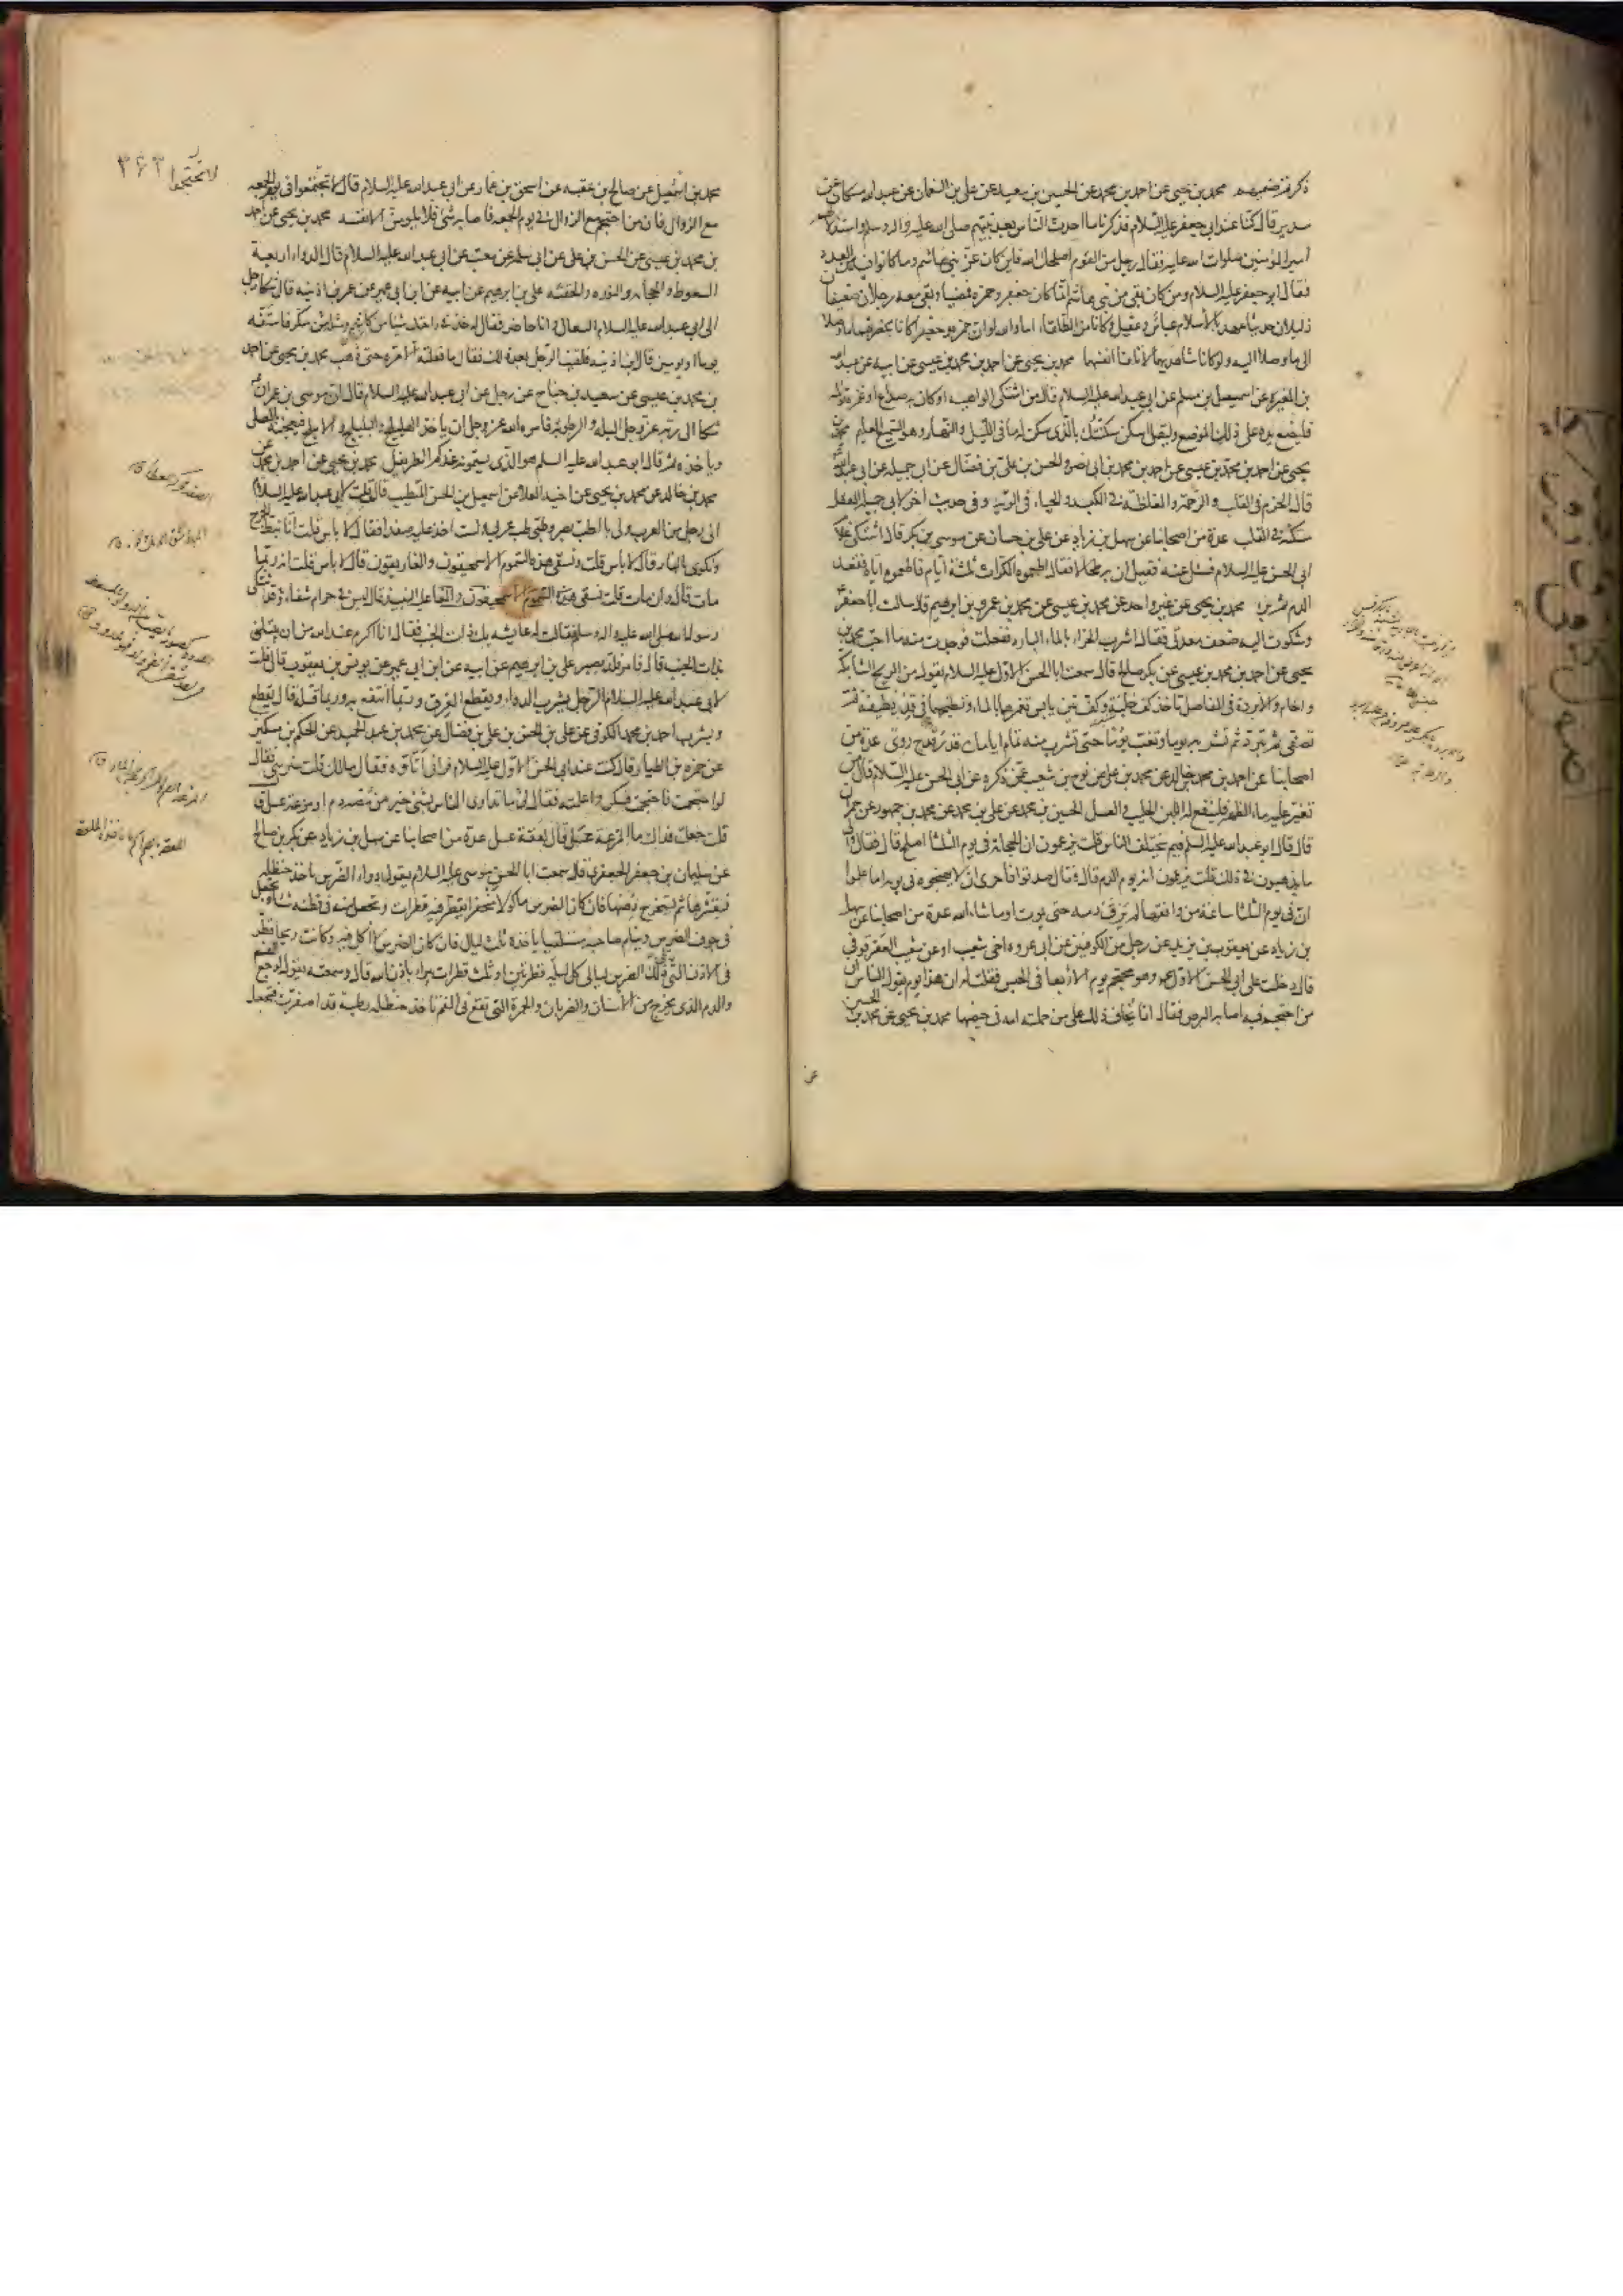 ذكر فيضعهم محمد بن يحيى عن احمد بن محمد عن الحسين بن سعيد عن علي بن النعمان عن عبد الله بن مسكان عن
سدير قال كنا عند ابي جعفر عليه السلام فذكرنا ما احدث الناس بعد نبيهم صلى الله عليه واله وسلم واستذلالهم
امير المؤمنين صلوات الله عليه فقال رجل من القوم اصلحك الله فاين كان عز بني هاشم وما كانوا فيه من العدد
فقال ابو جعفر عليه السلام ومن كان بقي من بني هاشم انما كان جعفر وحمزة فمضيا وبقي معه رجلان ضعيفان
ذليلان حديثا عهد بالاسلام عباس وعقيل وكانا من الطلقاء اما والله لو ان حمزة وجعفرا كانا بحضرتهما ما وصلا
الى ما وصلا اليه ولو كانا شاهديهما لاتلفا نفسيهما محمد بن يحيى عن احمد بن محمد بن عيسى عن ابيه عن عبد الله
بن المغيرة عن اسمعيل بن مسلم عن ابي عبد الله عليه السلام قال من اشتكى الواهنة او كان به صداع او غمزة بوله
فليضع يده على ذلك الموضع وليقل اسكن سكنتك بالذي سكن له ما في الليل والنهار وهو السميع العليم محمد بن
يحيى عن احمد بن محمد بن عيسى عن احمد بن محمد بن ابي نصر والحسن بن علي بن فضال عن ابي جميله عن ابي عبد الله
قال الحزم في القلب والرحمة والغلظة في الكبد والحياء في الرية وفي حديث اخر لابي جميلة العقل
مسكنه في القلب عدة من اصحابنا عن سهل بن زياد عن علي بن حسان عن موسى بن بكر قال اشتكى غلام
الى ابي الحسن عليه السلام فسئل عنه فقيل ان به طحالا فقال اطعموه الكراث ثلثة ايام فاطعموه اياه فقعد
الدم ثم برئ محمد بن يحيى عن غير واحد عن محمد بن عيسى عن محمد بن عمرو بن ابرهيم قال سالت ابا جعفر
وشكوت اليه ضعف معدتي فقال اشرب الحزاء بالماء البارد ففعلت فوجدت منه ما احب محمد بن
يحيى عن احمد بن محمد بن عيسى عن بكر بن صالح قال سمعت ابا الحسن الاول عليه السلام يقول من الريح الشابكة
والحام والابردة في المفاصل تاخذ كف حلبة وكف تين يابس تغمرهما بالماء وتطبخهما في قدر نظيفة ثم
تصفى ثم تبرد ثم تشربه يوما وتغب يوما حتى تشرب منه تمام ايامك قدر قدح روي عدة من
اصحابنا عن احمد بن محمد بن خالد عن محمد بن علي عن نوح بن شعيب عمن ذكره عن ابي الحسن عليه السلام قال من
تغير عليه ماء الظهر فلينفع له اللبن الحليب والعسل الحسين بن محمد عن علي بن محمد عن محمد بن جمهور عن حمران
قال قال ابو عبد الله عليه السلم فيم يختلف الناس قلت يزعمون ان الحجامة في يوم الثلثا اصلح قال فقال والى
ما يذهبون في ذلك قلت يزعمون انه يوم الدم قال فقال صدقوا فاحرى ان لا يهيجوه في يومه اما علموا
ان في يوم الثلثا ساعة من وافقها لم يرق دمه حتى يموت او ما شاء الله عدة من اصحابنا عن سهل
بن زياد عن يعقوب بن يزيد عن رجل من الكوفيين عن ابي عروة اخي شعيب او عن شعيب العقرقوفي
قال دخلت على ابي الحسن الاول وهو محتجم يوم الاربعا في الحبس فقلت له ان هذا يوم يقول الناس ان
من احتجم فيه اصابه البرص فقال انما يخاف ذلك على من حملته امه في حيضها محمد بن يحيى عن محمد بن الحسين
عن
لا تحتجموا ٣۶٣
محمد بن اسمعيل عن صالح بن عقبه عن اسحق بن عمار عن ابي عبد الله عليه السلام قال لا تحتجموا في يوم الجمعه
مع الزوال فان من احتجم مع الزوال في يوم الجمعه فاصابه شئ فلا يلومن الا نفسه محمد بن يحيى عن احمد
بن محمد بن عيسى عن الحسن بن علي عن ابي سلمة عن معتب عن ابي عبد الله عليه السلام قال الدواء اربعة
السعوط والحجامه والنوره والحقنه علي بن ابرهيم عن ابيه عن ابن ابي عمير عن عمر بن اذينه قال شكا رجل
الى ابي عبد الله عليه السلام السعال وانا حاضر فقال له خذ في راحتك شيئا من كاشم ومثله من سكر فاستفه
يوما او يومين قال ابن اذينه فلقيت الرجل بعد ذلك فقال ما فعلته الا مره حتى ذهب محمد بن يحيى عن احمد
بن محمد بن عيسى عن سعيد بن جناح عن رجل عن ابي عبد الله عليه السلام قال ان موسى بن عمران
شكا الى ربه عز وجل البله والرطوبة فامره الله عز وجل ان ياخذ الهليلج والبليلج والاملج فيعجنه بالعسل
وياخذه ثم قال ابو عبد الله عليه السلم هو الذي يسمونه عندكم الطريفل محمد بن يحيى عن احمد بن محمد عن
محمد بن خالد عن محمد بن يحيى عن اخيه العلاء عن اسمعيل بن الحسن المتطبب قال قلت لابي عبد الله عليه السلام
اني رجل من العرب ولي بالطب بصر وطبي طب عربي ولست اخذ عليه صفدا فقال لا باس قلت انا نبط الجرح
ونكوي بالنار قال لا باس قلت ونسقي هذه السموم الاسمحيقون والغاريقون قال لا باس قلت انه ربما
مات قال وان مات قلت نسقي عليه النبيذ قال ليس في حرام شفاء قد اشتكى
رسول الله صلى الله عليه واله وسلم فقالت له عايشه بك ذات الجنب فقال انا اكرم عند الله من ان يبتليني
بذات الجنب قال فامر فلد بصبر علي بن ابرهيم عن ابيه عن ابن ابي عمير عن يونس بن يعقوب قال قلت
لابي عبد الله عليه السلام الرجل يشرب الدواء ويقطع العرق وربما انتفع به وربما قتله قال يقطع
ويشرب احمد بن محمد الكوفي عن علي بن الحسن بن علي بن فضال عن محمد بن عبد الحميد عن الحكم بن مسكين
عن حمزه بن الطيار قال كنت عند ابي الحسن الاول عليه السلام فراني اتاوه فقال ما لك قلت ضرسي فقال
لو احتجمت فاحتجمت فسكن واعلمته فقال لي ما تداوى الناس بشئ خير من مصة دم او مزعة عسل ق
قلت جعلت فداك ما المزعة عسل قال لعقة عسل عدة من اصحابنا عن سهل بن زياد عن بكر بن صالح
عن سليمان بن جعفر الجعفري قال سمعت ابا الحسن موسى عليه السلام يقول دواء الضرس تاخذ حنظلة
فتقشرها ثم تستخرج دهنها فان كان الضرس ماكولا منحفرا تقطر فيه قطرات وتجعل منه في قطنه شيئا وتجعل
في جوف الضرس وينام صاحبه مستلقيا ياخذه ثلث ليال فان كان الضرس لا اكل فيه وكانت ريحا قطر
في الاذن التي تلي ذلك الضرس ليالي كل ليلة قطرتين او ثلث قطرات يبرء باذن الله قال وسمعته يقول لوجع الفم
والدم الذي يخرج من الاسنان والضربان والحمرة التي تقع في الفم تاخذ حنظلة رطبة قد اصفرت فتجعل
الصفد محركة العطاء ق